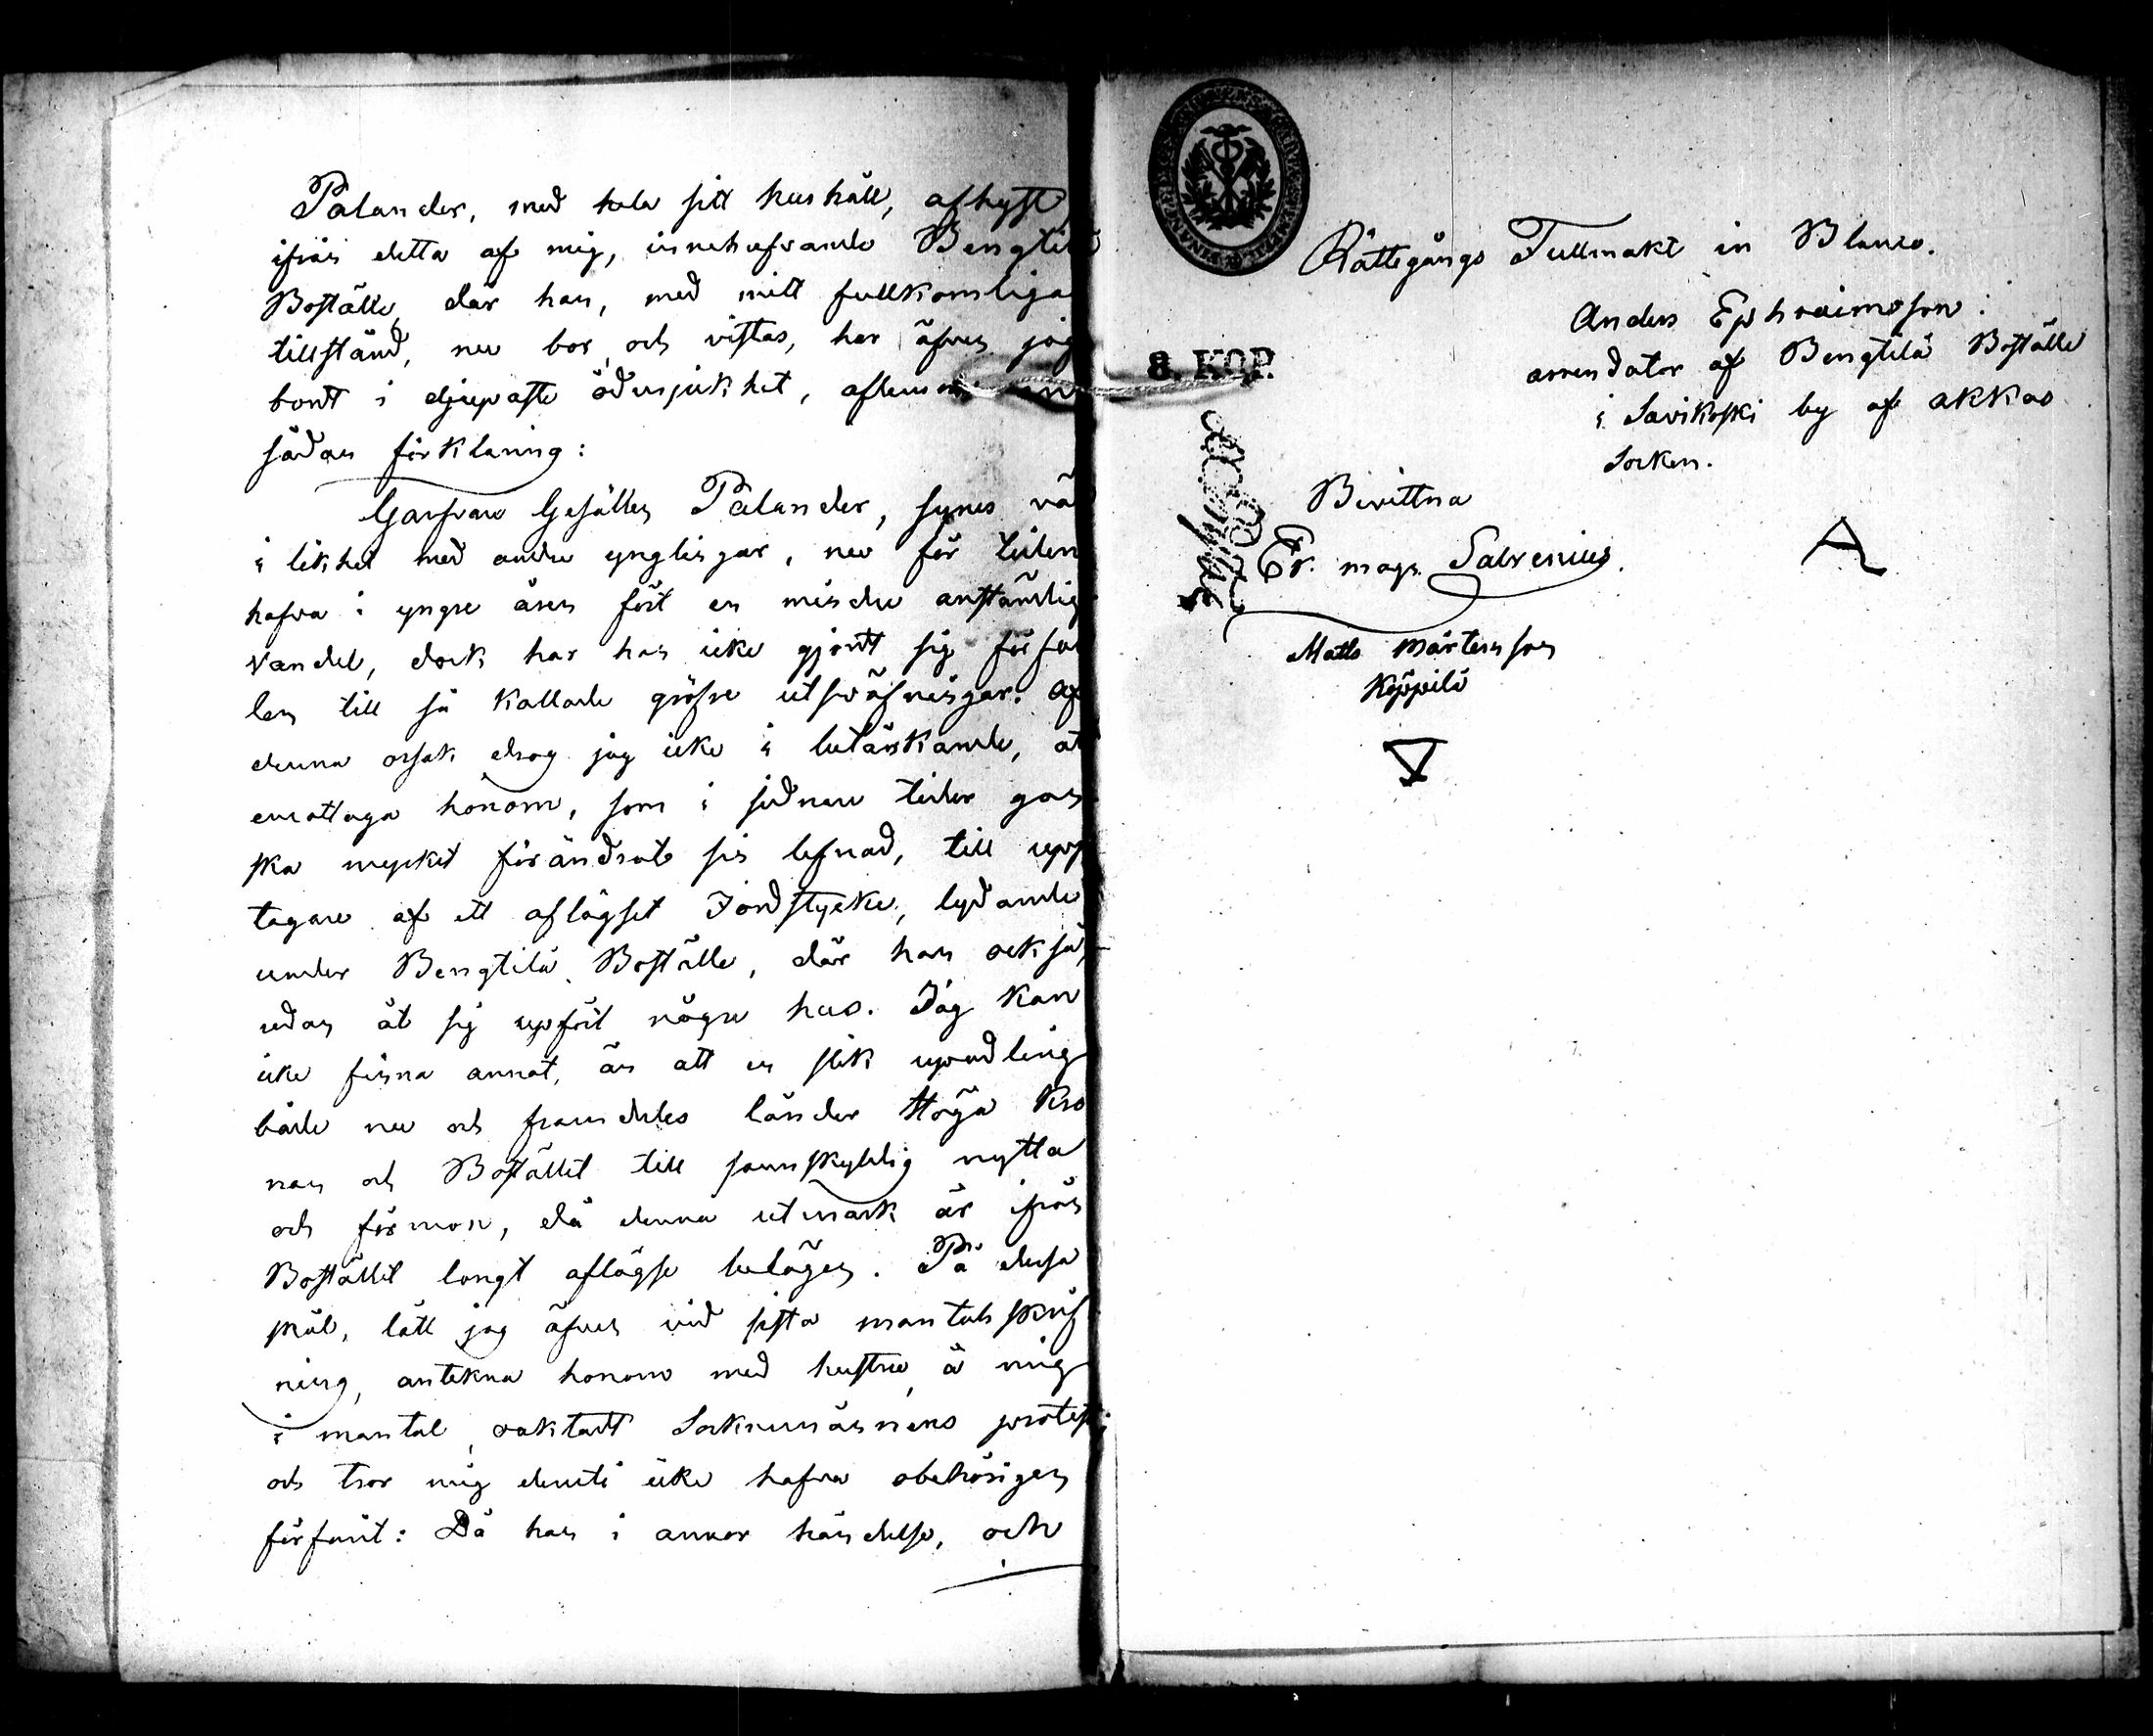 Palander, med hela sitt hushåll, afhyst
ifrån detta af mig, innehafvande Bengtilä
Boställe, där han, med mitt fullkomliga
tillstånd, nu bor, och vistas, har äfven jag
bordt i djupaste ödmjukhet, aflemna en
sådan förklaring:
Garfvare Gesällen Palander, synes väl
i likhet med andre ynglingar, nu för tiden
hafva i yngre åren fört en mindre anständig
vandel, dock har han icke gjordt sig förfal
len till så kallade gröfre utsväfningar. Af
denna orsak drog jag icke i betänkande, at
emottaga honom, som i sednare tider gan
ska mycket förändrat sin lefnad, till upp
tagare af ett aflägset Jordstycke, lydande
under Bengtilä Boställe, där han också,
redan åt sig upfört några hus. Jag kan
icke finna annat, än att en slik upodling
både nu och framdeles länder Höga Kro
nan och Bostället till samskyldig nytta
och förmon, då denna utmark är ifrån
Bostället långt aflägse belägen. På dessa
skäl, lätt jag äfven vid sista mantals skrif
ning, antekna honom med hustru å mig
i mantal, oaktadt Sockenmännens protest;
och tror mig deruti icke hafva obehörigen
förfarit: Då han i annor händelse, och
Rättegångs Fullmakt in Blanco.
8. KOP.
Anders Ephraimsson:
arrendator af Bengtilä Boställe
i Savikoski by af Akkas
Socken.
Bevittna
Er. magn. Salvenius.
A
Matts Mårtensson
Köppilä